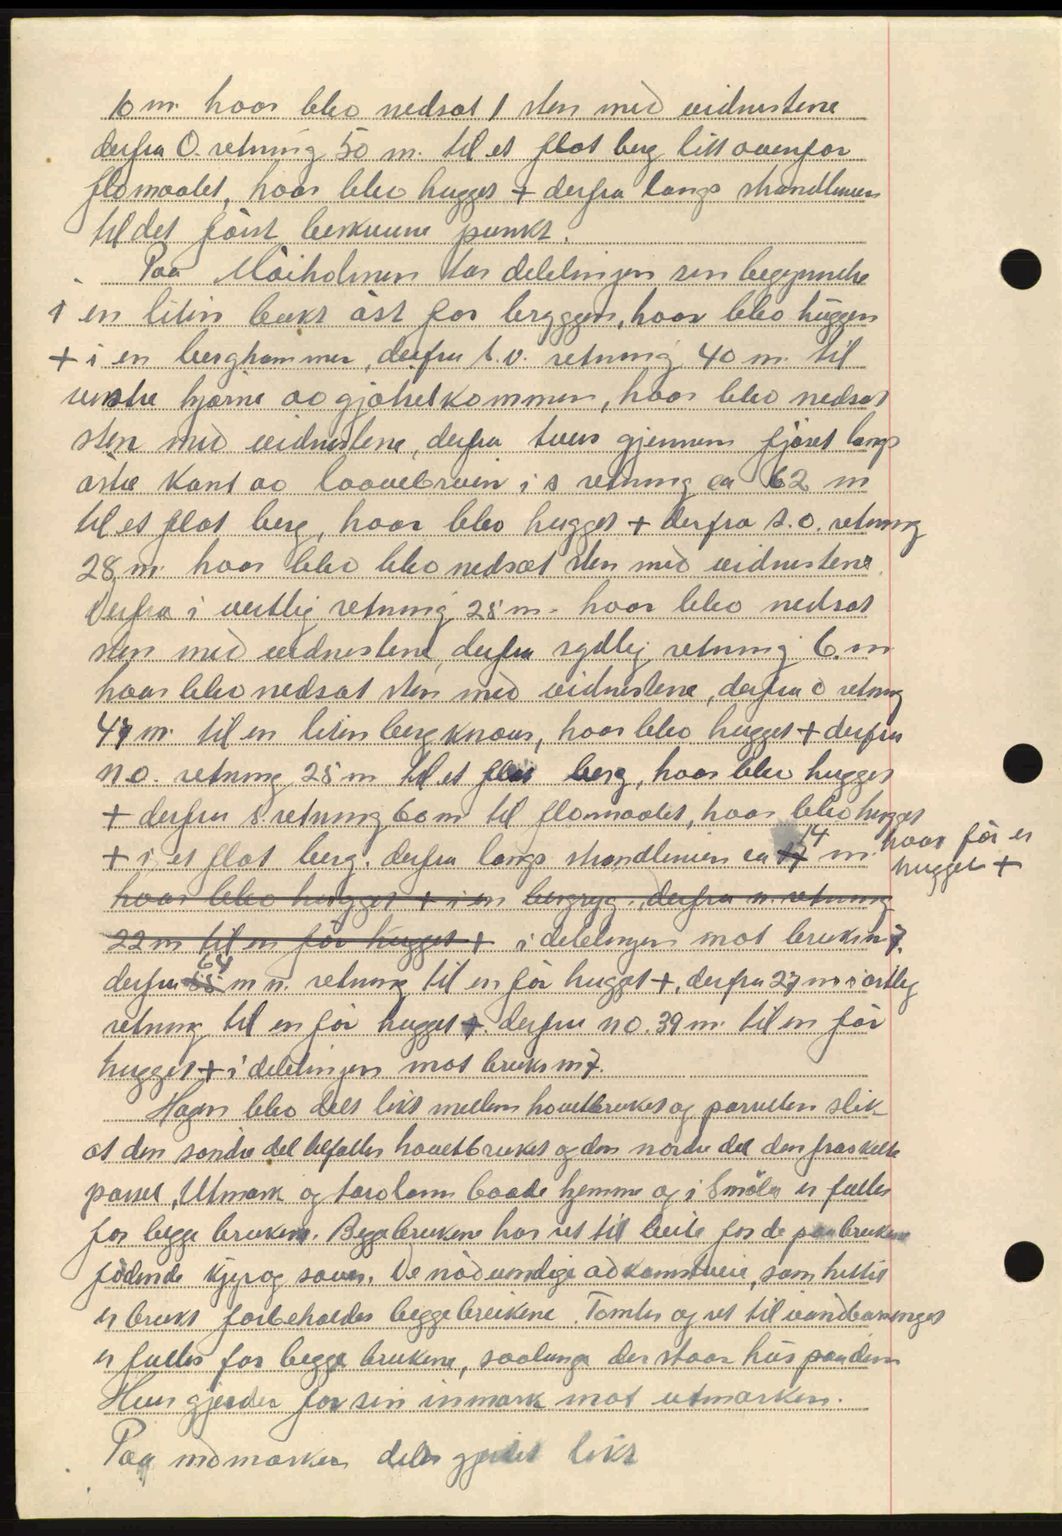 10 m. hvor blev nedsat 1 sten med vidnestene
derfra O. retning 50 m. til et flat berg litt ovenfor
flomaalet, hvor blev hugget + derfra langs strandlinien
til det först beskrevne punkt.
Paa Maiholmen tar delelingen sin begynnelse
i en liten bukt ast for bryggen, hvor blev huggen
+ i en berghammer, derfra s.v. retning 40 m. til
venstre hjørne av gjøtselkommen, hvor blev nedsat
sten med vidnestene, derfra tvers gjennem fjøset langs
østre kant av laavebruen i s retning ca 62 m
til et flat berg, hvor blev hugget + derfra s.o. retning
28 m. hvor blev blev nedsæt sten med vidnestene.
Derfra i vestlig retning 28 m. hvor blev nedsat
sten med vidnestene, derfra sydlig retning 6 m
hvor blev nedsat sten med vidnestene, derfra o retning
47 m. til en liten bergknaus, hvor blev hugget + derfra
n.o. retning 28 m til et flat berg, hvor blev hugget
+ derfra s. retning 60 m til flomaalet, hvor blev hugget
+ i et flat berg. derfra langs strandlinien ca 17 14 m. hvor för er hugget +
hvor blev hugget + i en bergryg, derfra n. retning
22 m til en för hugget + i delelingen mot bruksn 7.
derfra 64 m n. retning til en för hugget +, derfra 27 m i østlig
retning til en för hugget +. derfra n.o. 39 m. til en för
hugget + i delelingen mot bruks n 7.
Hagen blev delt likt mellem hovetbruket og parsellen slik
at den søndre del tilfaller hovetbruket og den nordre del den fraskelte
parsel. Utmark og torvland baade hjemme og i Smöla er felles
for begge brukene. Begge brukene har ret til beite for de paa brukene
födende kjyr og sauer. De nödvendige adkomstveie, som hittil
er brukt forbeholdes begge brukene. Tomter og ret til
er felles for begge brukene, saalenge der staar hus paa dem
Hver gjerder for sin inmark mot utmarken.
Paa indmarken deles gjerdet likt